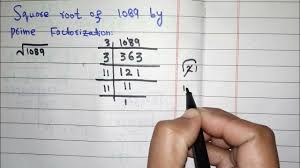 Square root of 1089 by
prime Factorization:
√1089
3 | 1089
3 | 363
11 | 121
11 | 11
1